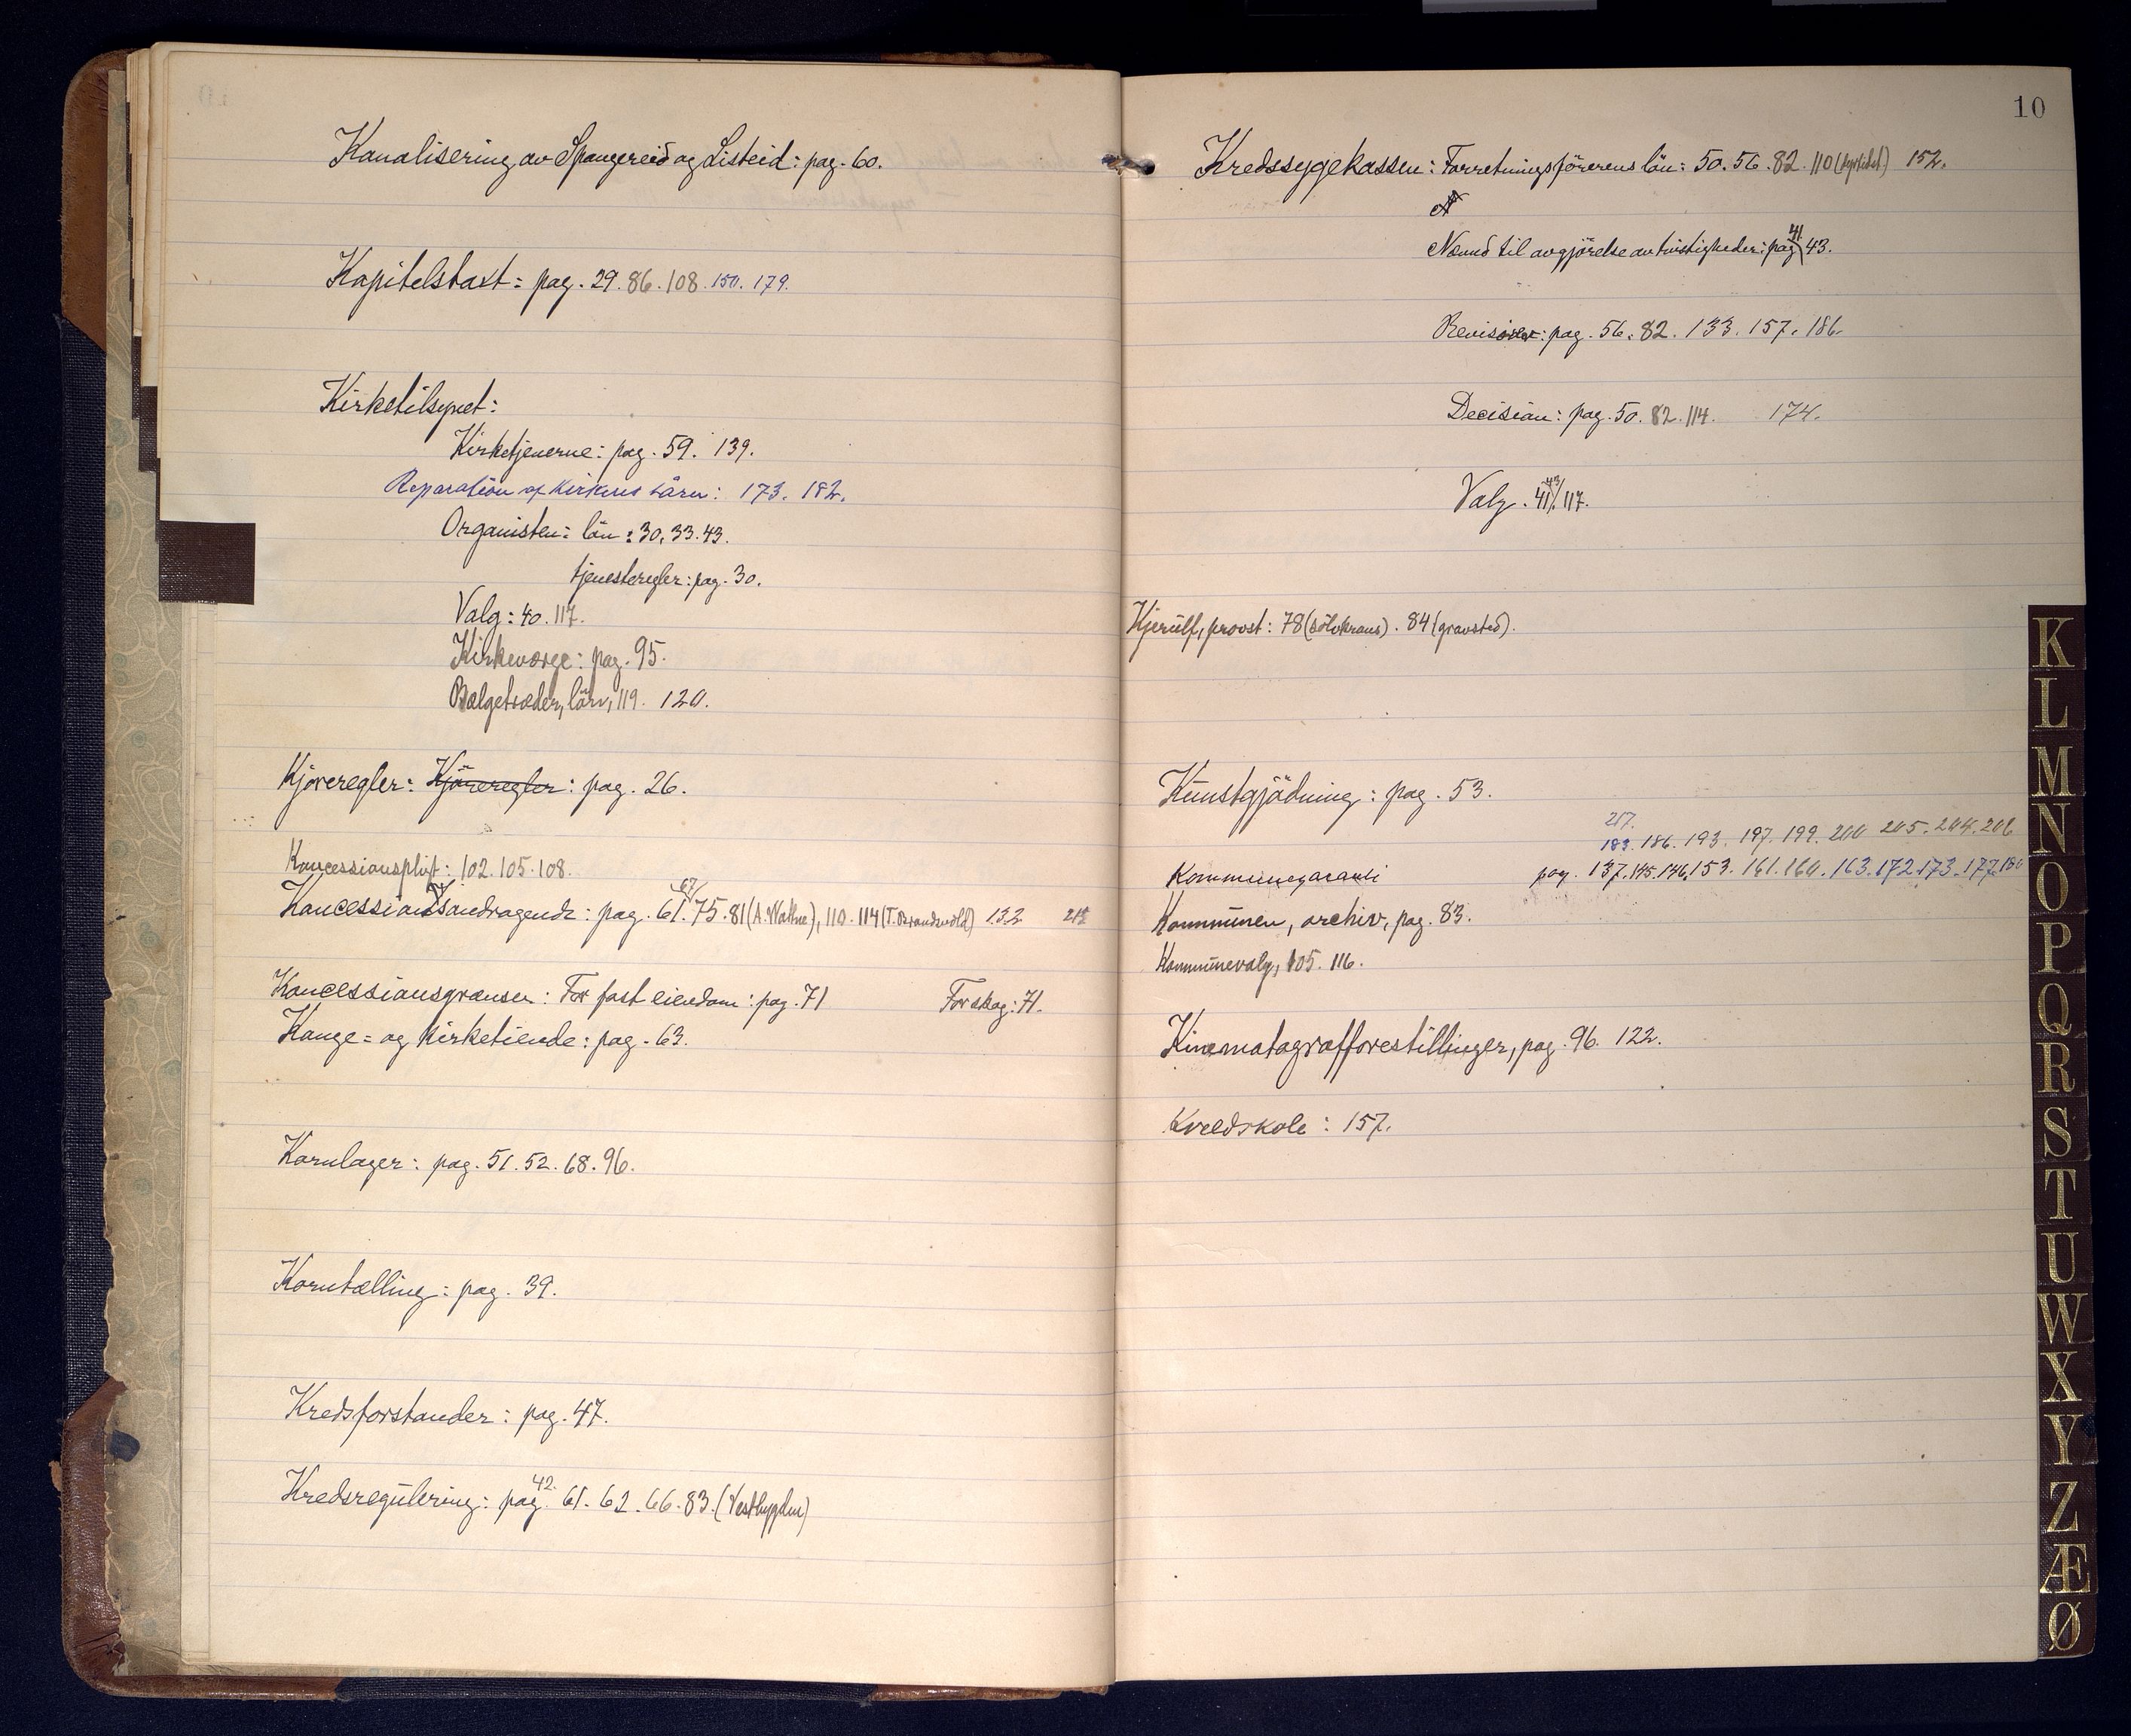 Kanalisering av Spangereid og Listeid: pag. 60.
Kapitelstaxt: pag. 29. 86. 108. 150. 179.
Kirketilsynet:
Kirketjenerne: pag. 59. 139.
Reparation af Kirkens tårn: 173. 182.
Organisten: lön: 30, 33. 43.
tjenesteregler: pag. 30.
Valg: 40. 117.
Kirkeværge: pag. 95.
Bælgetræder, lön, 119. 120.
Kjøreregler: Kjøreregler: pag. 26.
Koncessionsplikt: 102. 105. 108.
67
Koncessionsandragende: pag. 61. 75. 81 (A. Wathne), 110. 114 (T. Brandsvold) 132
Koncessionsgrænser: For fast eiendom: pag. 71 For skog: 71.
Konge= og Kirketiende: pag. 63.
Kornlager: pag. 51. 52. 68. 96.
Korntælling: pag. 39.
Kredsforstander: pag. 47.
42.
Kredsregulering: pag. 61. 62. 66. 83. (Vestbygden)
10
Kredssygekassen: Forretningsförerens lön: 50. 56. 82. 110 152.
N
41.
Nævnd til avgjörelse av tvistigheder: pag 43.
Revision: pag. 56. 82. 133. 157. 186.
Decision: pag. 50. 82. 114. 174.
43
Valg. 41. 117.
Kjerülf, provst: 78 (sölvkrans). 84 (gravsted).
Kunstgjödning: pag. 53.
217.
183. 186. 193. 197. 199. 200 205. 204. 206
Kommunegaranti pag. 137. 145. 146. 153. 161. 160. 163. 172. 173. 177. 180
Kommunen, archiv, pag. 83.
Kommunevalg, 105. 116.
Kinematografforestillinger, pag. 96. 122.
Kveldskole: 157.
K
L
M
N
O
P
Q
R
S
T
U
W
X
Y
Z
Æ
Ø